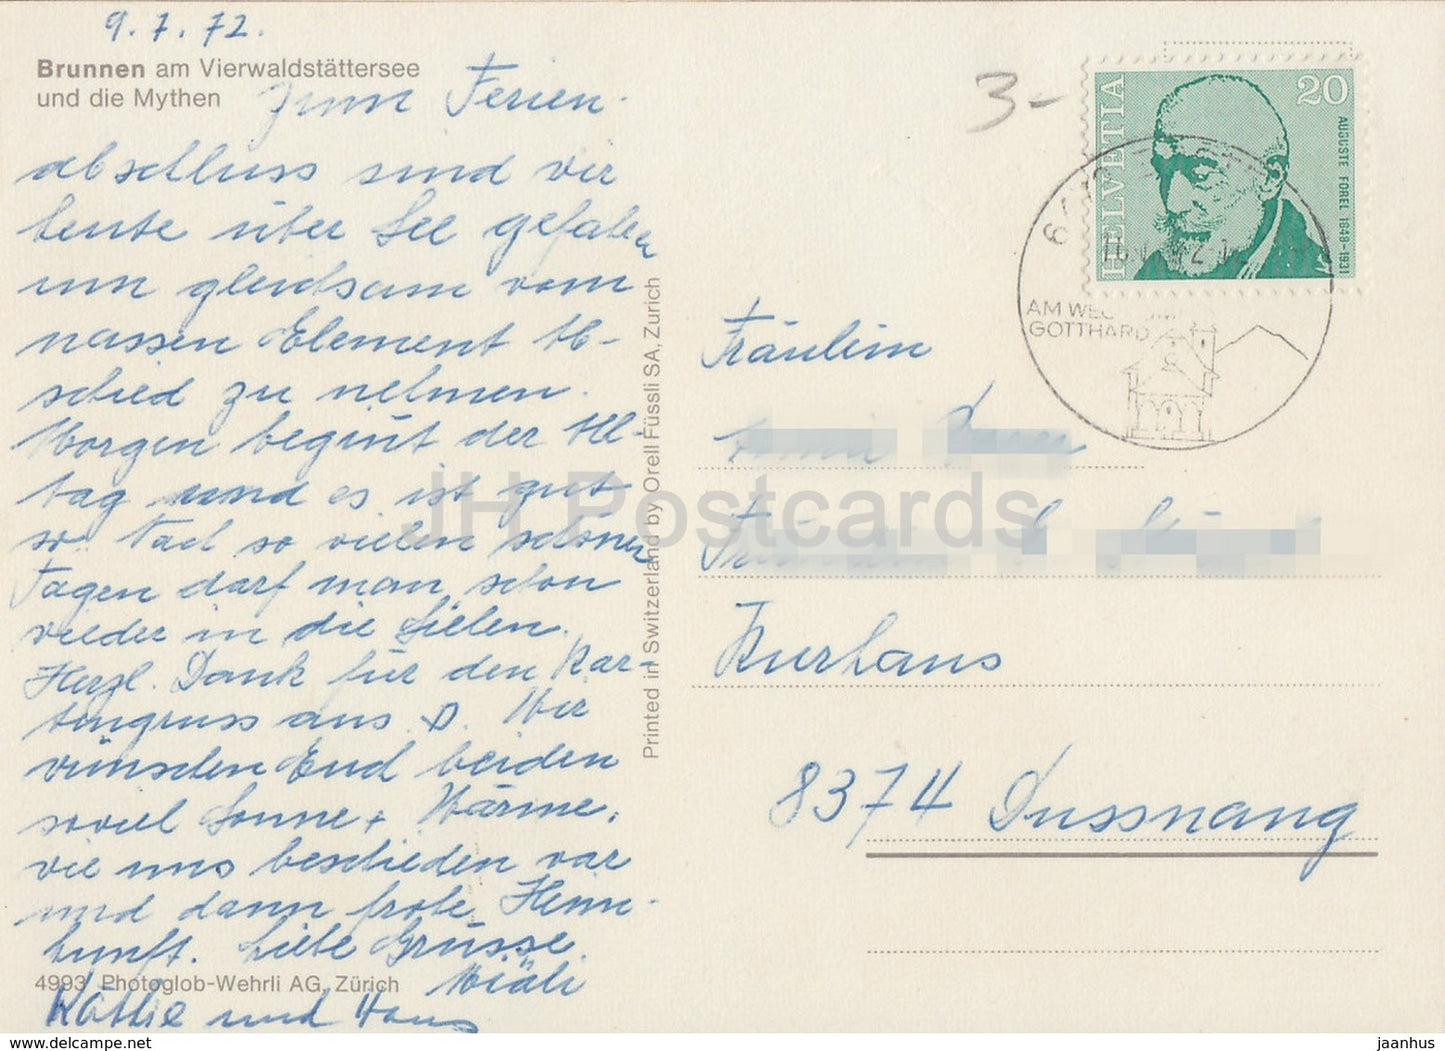 9.7.72.
Brunnen am Vierwaldstättersee
und die Mythen
zum Ferien-
abschluss sind wir
heute über See gefahren
um gleichsam vom
nassen Element Ab-
schied zu nehmen.
Morgen beginnt der All-
tag und es ist gut
so. Nach so vielen schönen
Tagen darf man schon
wieder in die Sielen.
Herzl. Dank für den Kar-
tengruss aus D. Wir
wünschen Euch beiden
soviel Sonne + Wärme,
wie uns beschieden war
und dann frohe Heim-
kunft. Liebe Grüsse
Käthie und Hans
4993 Photoglob-Wehrli AG, Zürich
Printed in Switzerland by Orell Füssli SA, Zurich
3-
HELVETIA
20
AUGUSTE FOREL 1848-1931
AM WEG ZUM
GOTTHARD
Fräulein
Kurhaus
8374 Dussnang
JH Postcards
www.delcampe.net
jaanhus